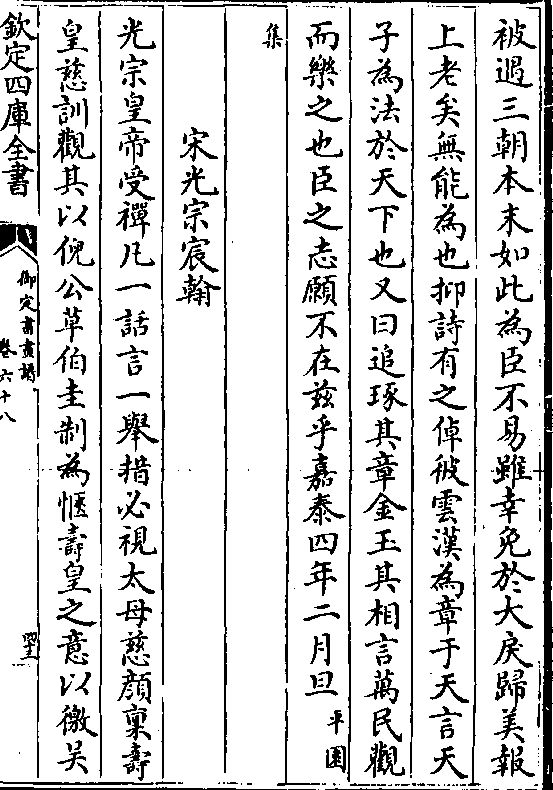 被遇三朝本末如此為臣不易雖幸免於大戾歸美報
上老矣無能為也抑詩有之倬彼雲漢為章于天言天
子為法於天下也又曰追琢其章金玉其相言萬民觀
而樂之也臣之志願不在兹乎嘉泰四年二月旦平園
集
宋光宗宸翰
光宗皇帝受禪凡一話言一舉措必視太母慈顔稟壽
皇慈訓觀其以倪公草伯圭制為愜壽皇之意以徽吴
欽定四庫全書
御定書畫譜
卷六十八